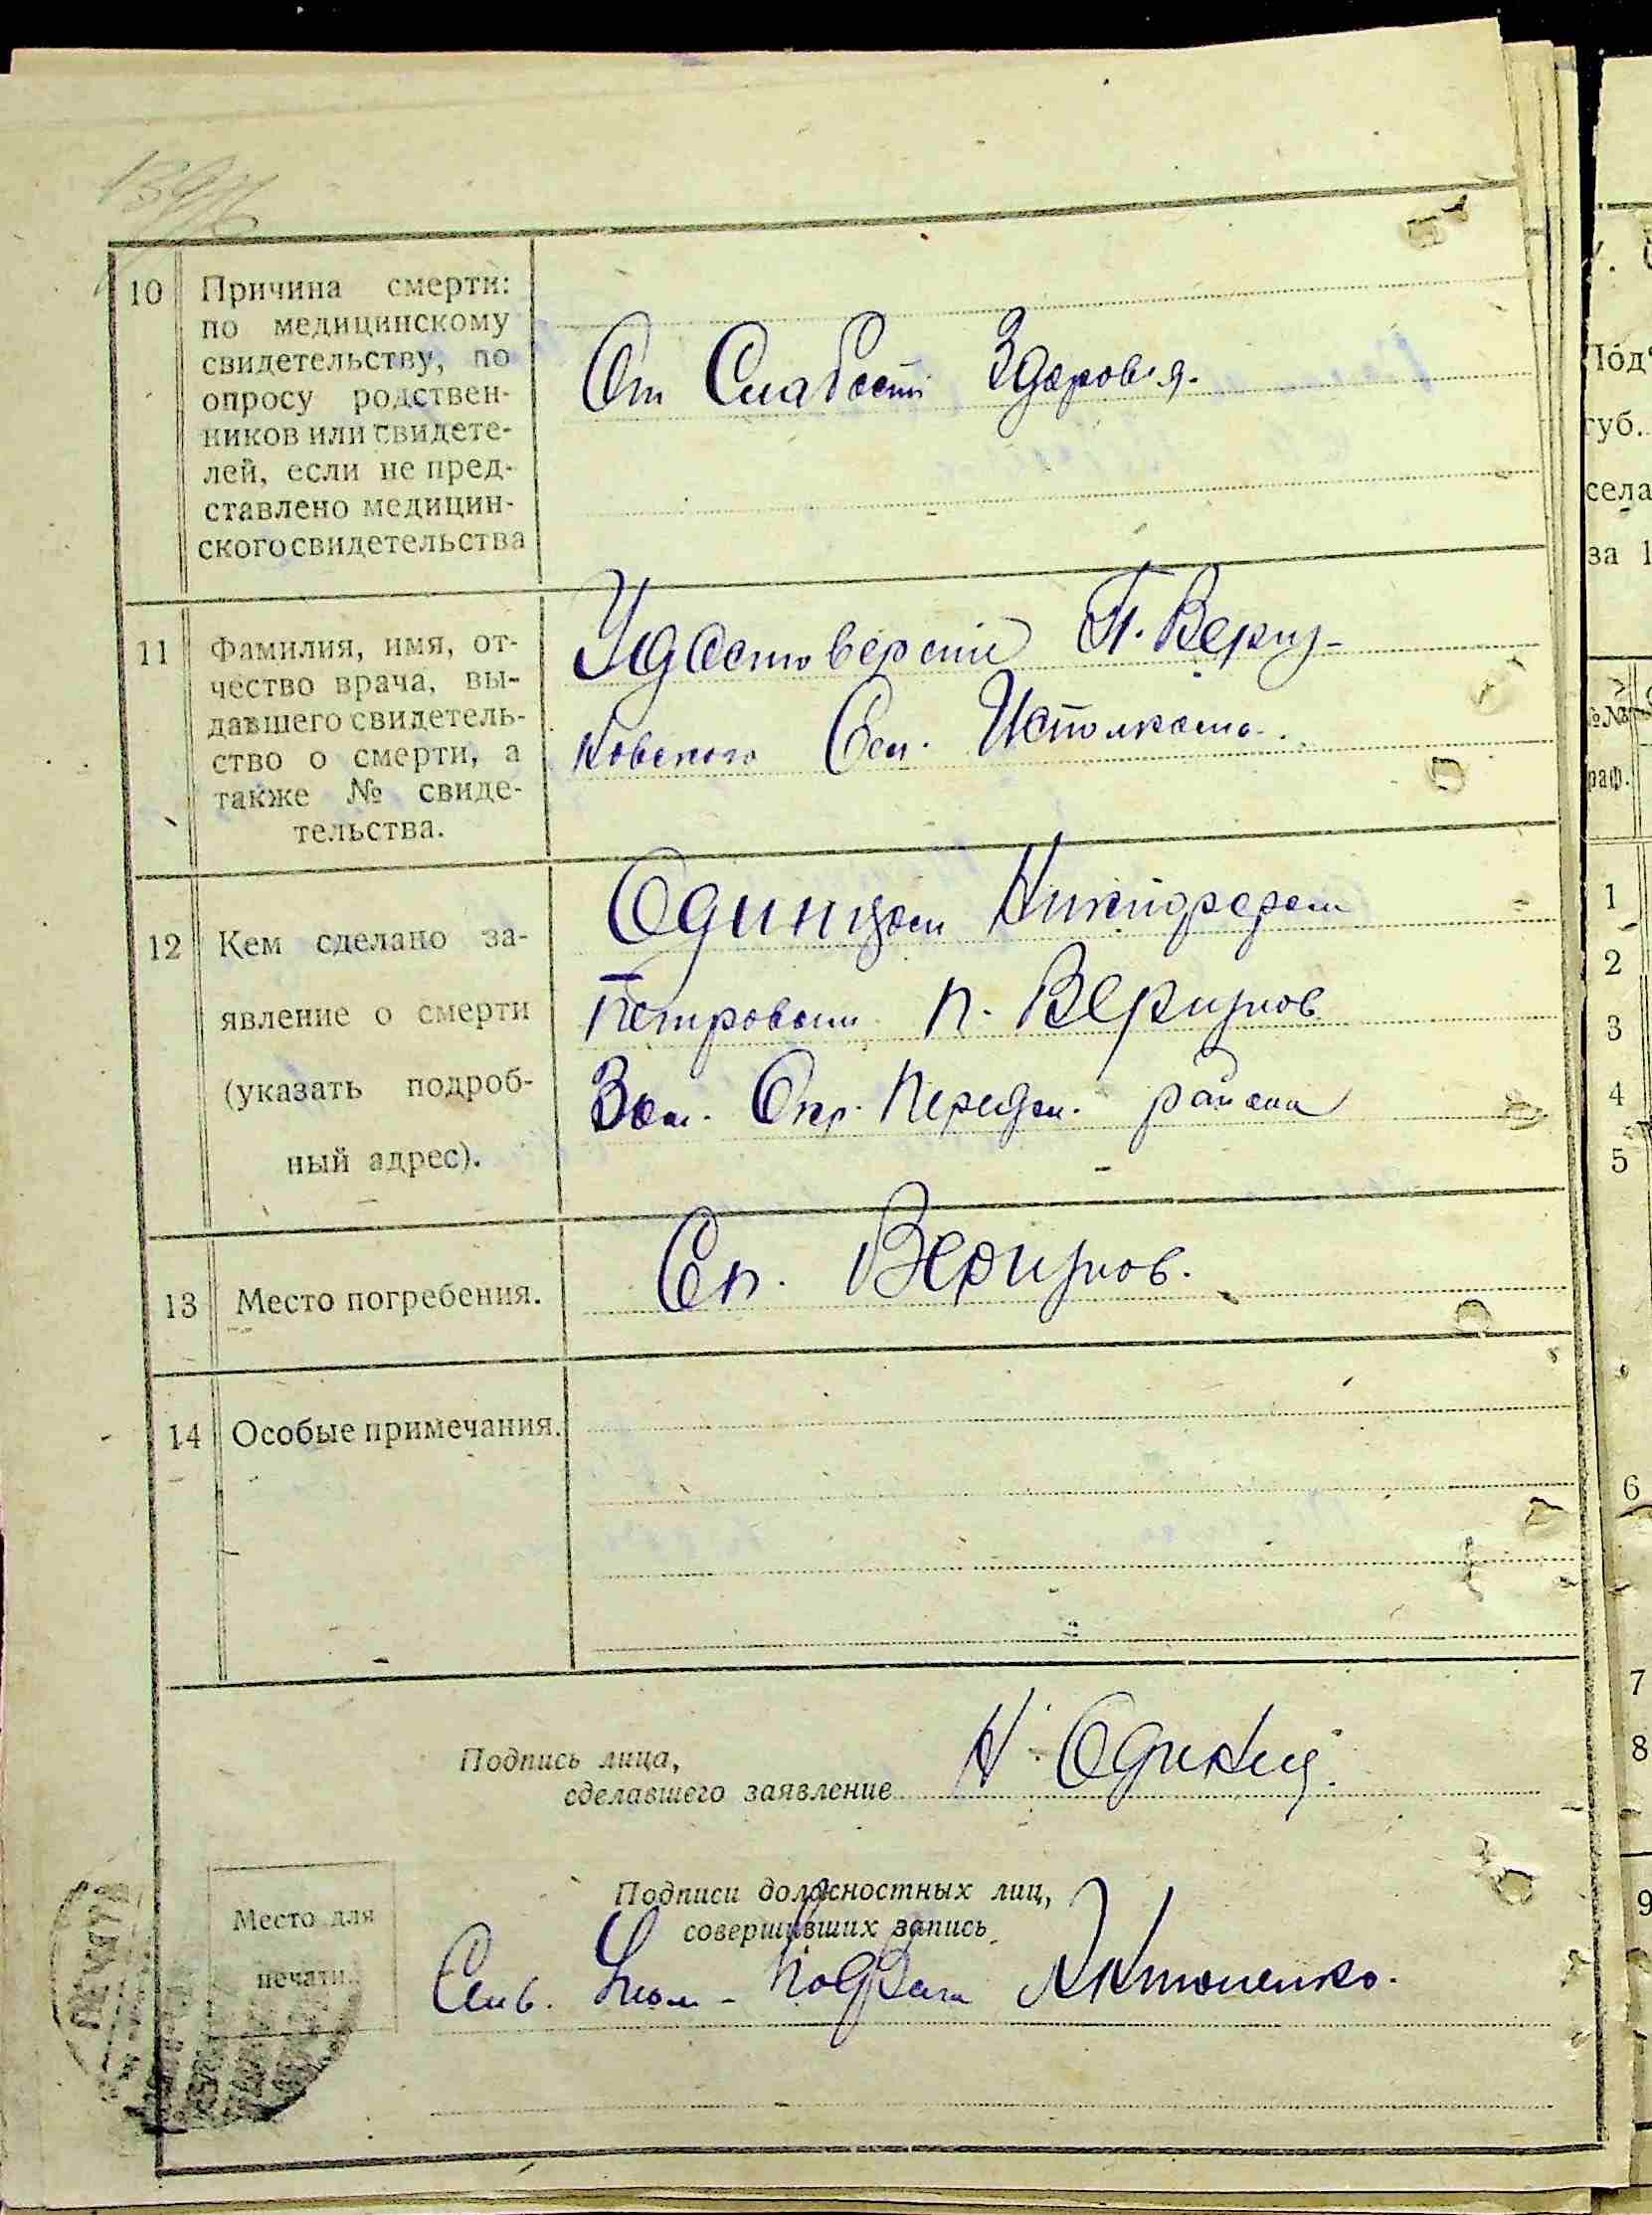 10 Причина смерти:
по медицинскому
свидетельству, по
опросу родствен-
ников или свидете-
лей, если не пред-
ставлено медицин-
ского свидетельства
От Слабости Здоровья.
11 Фамилия, имя, от-
чество врача, вы-
давшего свидетель-
ство о смерти, а
также № свиде-
тельства.
Удостоверение П. Вериж-
ковского Сел. Исполкома.
12 Кем сделано за-
явление о смерти
(указать подроб-
ный адрес).
Одинцом Никифором
Петровым п. Верижков
Зам. Окр. Передм. района
13 Место погребения.
Сп. Верижков.
14 Особые примечания.
Подпись лица,
сделавшего заявление
Н. Одинец.
Место для
печати.
Подписи должностных лиц,
совершивших запись
Антоненко.
ПЕЧАТЬ
Под
губ.
села
за 1
№№
раф.
1
2
3
4
5
6
7
8
9